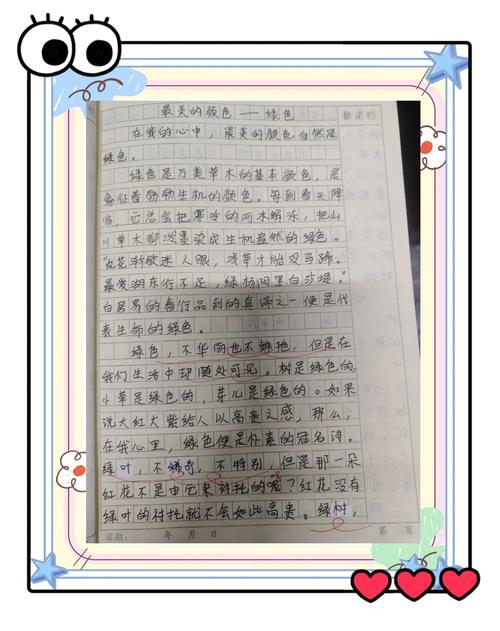 最美的颜色——绿色
修退档
在我的心中，最美的颜色自然是
绿色。
绿色是万类草木的基本颜色，是
象征着勃勃生机的颜色。每到春天降
临，它总会把寒冷的河水解冻，把山
川草木都淡墨染成生机盎然的绿色。
“乱花渐欲迷人眼，浅草才能没马蹄。
最爱湖东行不足，绿杨阴里白沙堤。”
白居易的春行品到的真谛之一便是代
表生命的绿色。
绿色，不华丽也不鲜艳，但是在
我们生活中却随处可见。树是绿色的，
小草是绿色的，芽儿是绿色的。如果
说大红大紫给人以高贵之感，那么，
在我心里，绿色便是朴素的冠名词。
绿叶，不稀奇，不特别，但是那一朵
红花不是由它来衬托的呢？红花没有
绿叶的衬托就不会如此高贵。绿树，
日期： 年 月 日
第 页